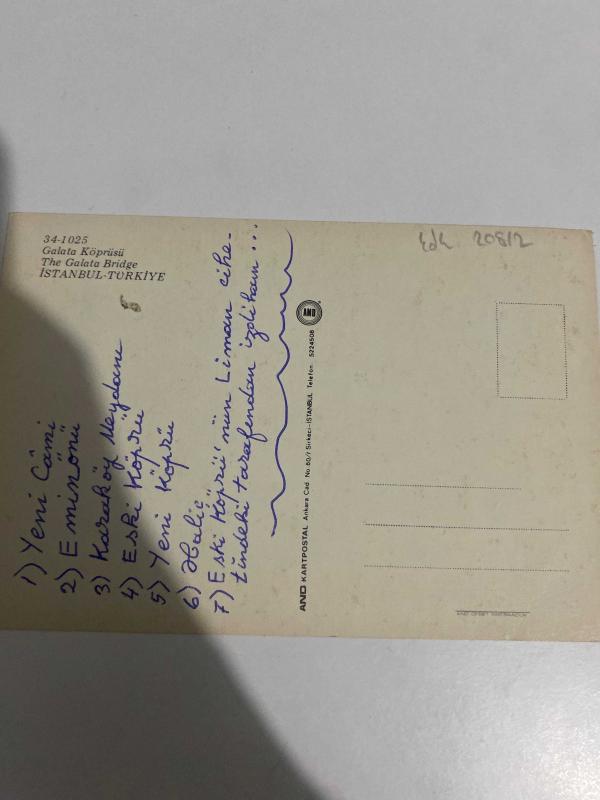 34-1025
Galata Köprüsü
The Galata Bridge
İSTANBUL-TÜRKİYE
1) Yeni Câmi
2) Eminönü
3) Karaköy Meydanı
4) Eski Köprü
5) Yeni Köprü
6) Haliç
7) Eski Köprü'nün Liman cihe-
tindeki tarafından izdiham...
AND KARTPOSTAL Ankara Cad. No. 60/7 Sirkeci-İSTANBUL Telefon: 5224508
AND
20812